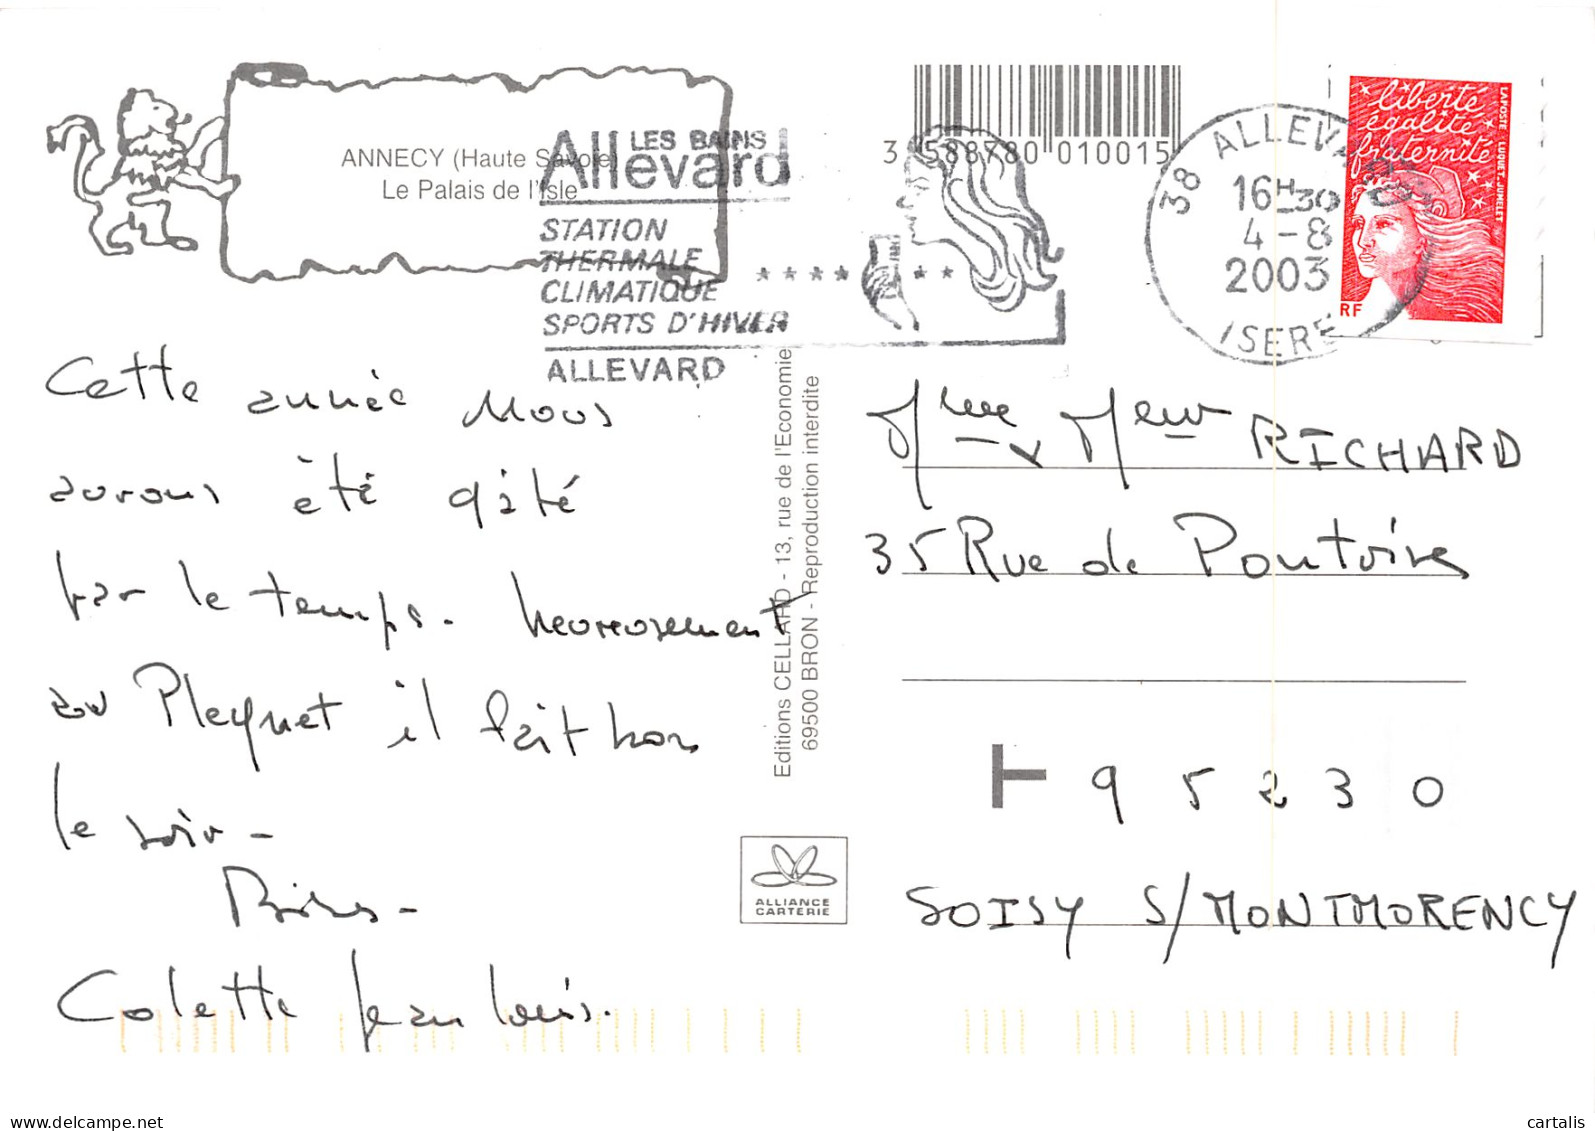 ANNECY (Haute Savoie)
Le Palais de l'Isle
LES BAINS
Allevard
STATION
THERMALE
CLIMATIQUE
SPORTS D'HIVER
ALLEVARD
3 588780 010015
38 ALLEVARD
16H30
4-8
2003
ISERE
liberté
égalité
fraternité
LAPOSTE LUQUET-JUMELET
RF
Cette année nous
avons été gâté
par le temps. heureusement
au Pleynet il fait bon
le soir -
Bises -
Colette Jean Louis.
Editions CELLARD - 13, rue de l'Economie
69500 BRON - Reproduction interdite
Mme x Meur RICHARD
35 Rue de Pontoise
T 95230
SOISY S/MONTMORENCY
ALLIANCE
CARTERIE
www.delcampe.net
cartalis